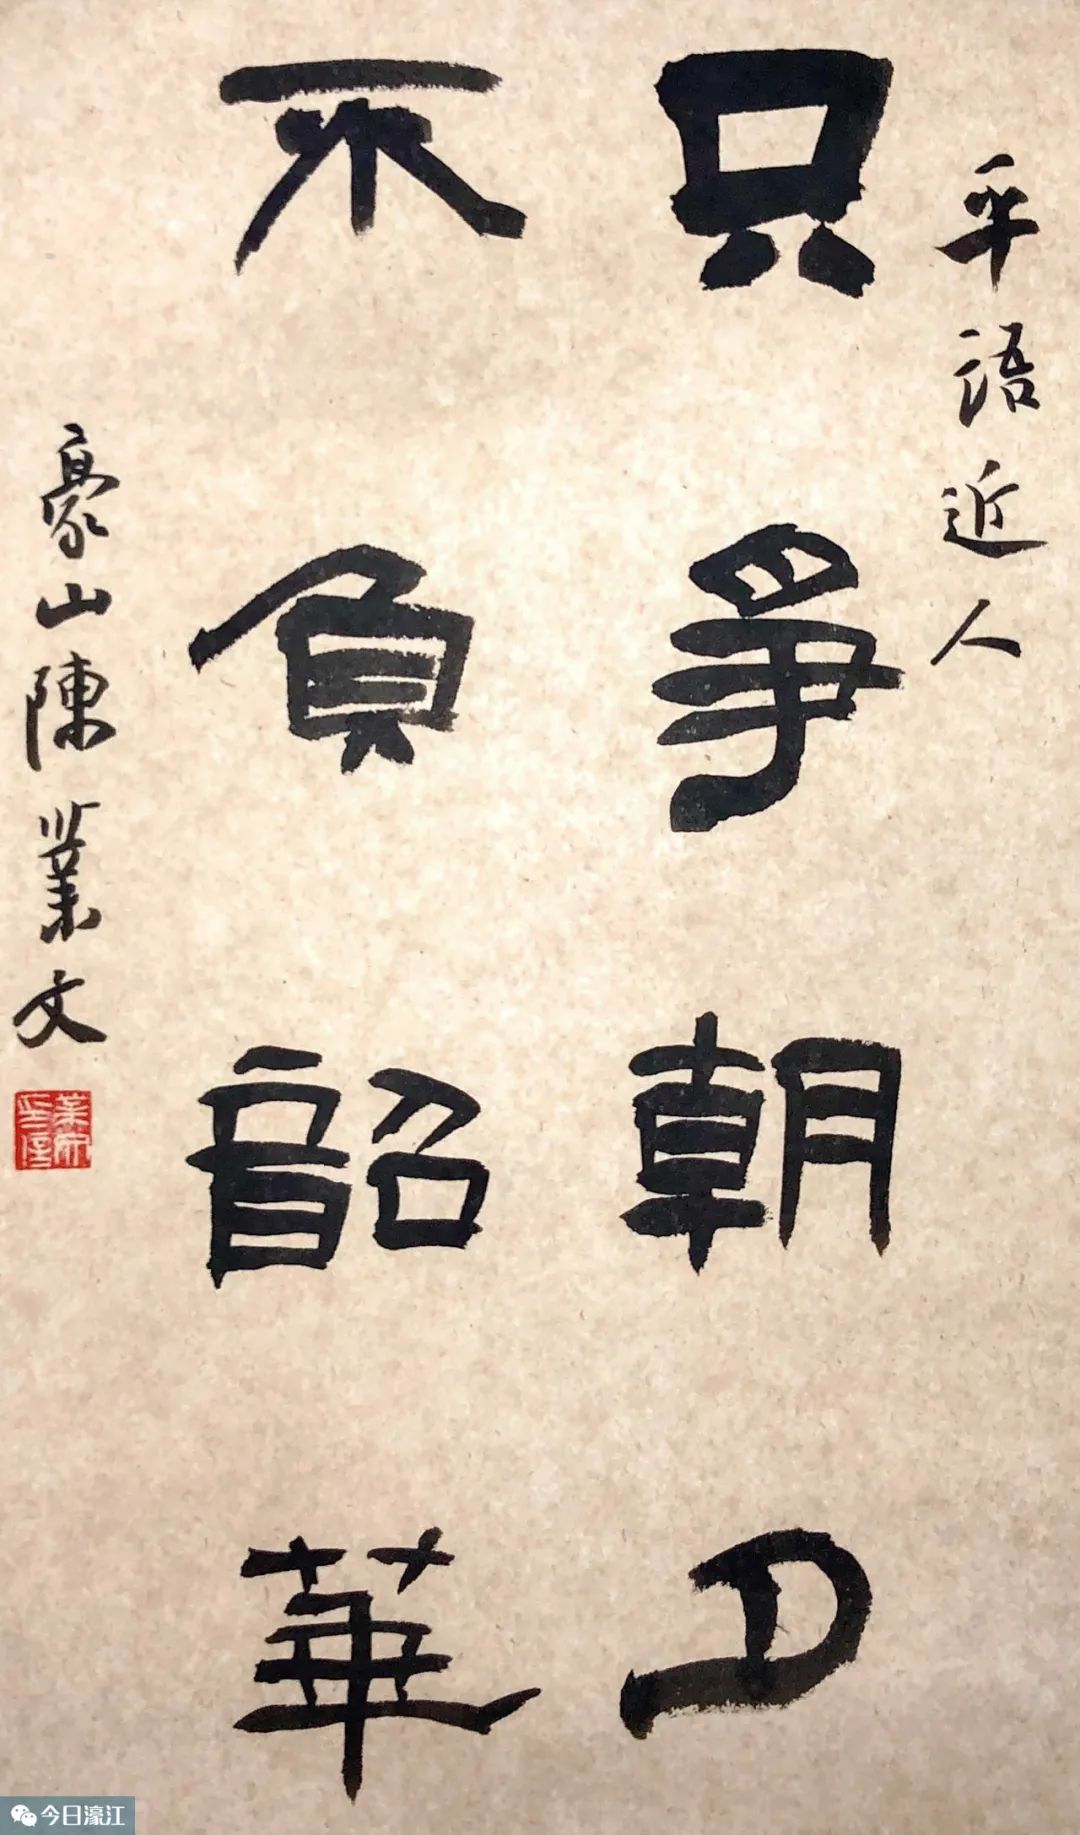 平語近人
只爭朝夕
不負韶華
豪山陳業文
今日濠江